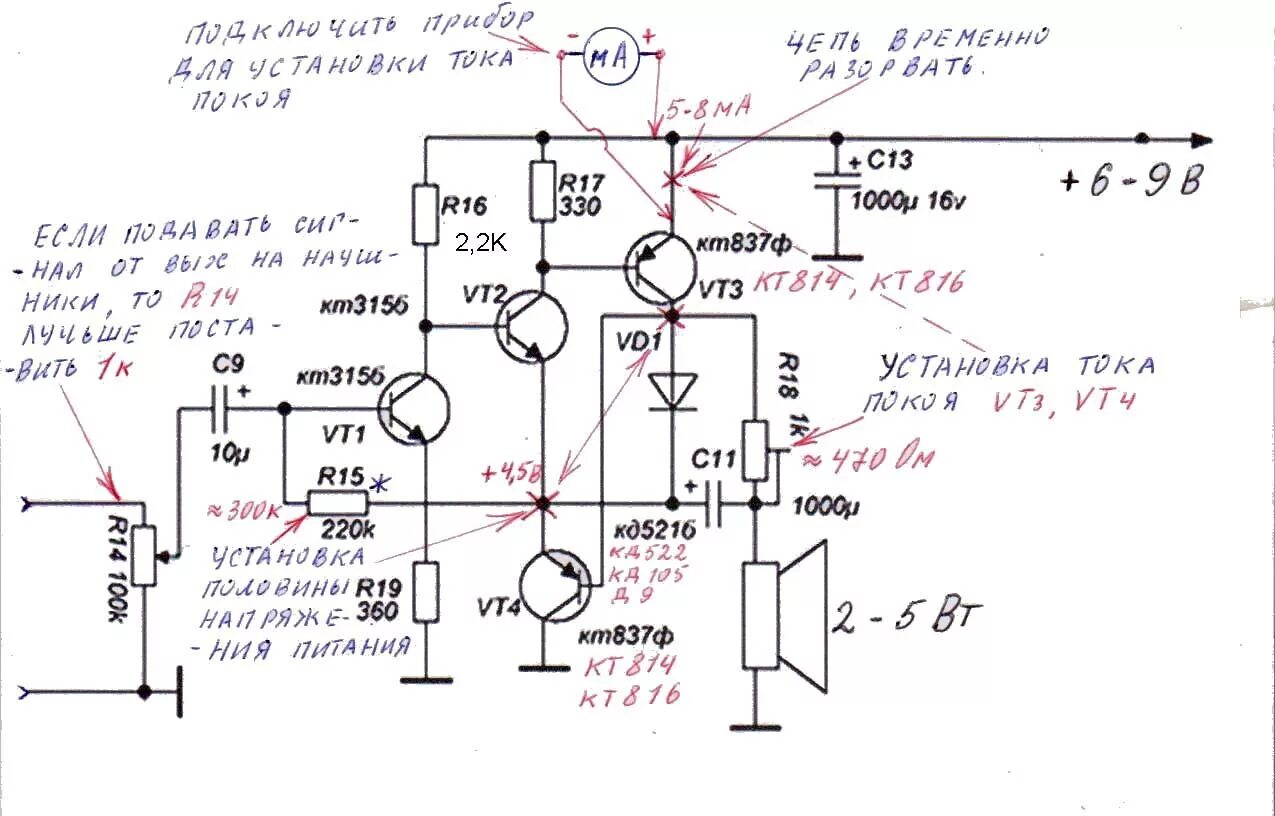 ПОДКЛЮЧИТЬ ПРИБОР
ДЛЯ УСТАНОВКИ ТОКА
ПОКОЯ
- мА +
ЦЕПЬ ВРЕМЕННО
РАЗОРВАТЬ.
5-8мА
+ C13
1000µ 16v
+6-9В
R16
2,2K
R17
330
кт837ф
VT3
КТ814, КТ816
ЕСЛИ ПОДАВАТЬ СИГ-
-НАЛ ОТ ВЫХ НА НАУШ-
НИКИ, ТО R14
ЛУЧЬШЕ ПОСТА-
-ВИТЬ 1к
кт315б
VT2
C9
+
10µ
кт315б
VT1
VD1
R18 1k
УСТАНОВКА ТОКА
ПОКОЯ VT3, VT4
≈470 Ом
R15 *
≈300к
220k
+4,5В
C11
+
1000µ
R14 100k
УСТАНОВКА
ПОЛОВИНЫ
НАПРЯЖЕ-
-НИЯ ПИТАНИЯ
R19
360
VT4
кд521б
КД522
КД105
Д9
кт837ф
КТ814
КТ816
2-5Вт